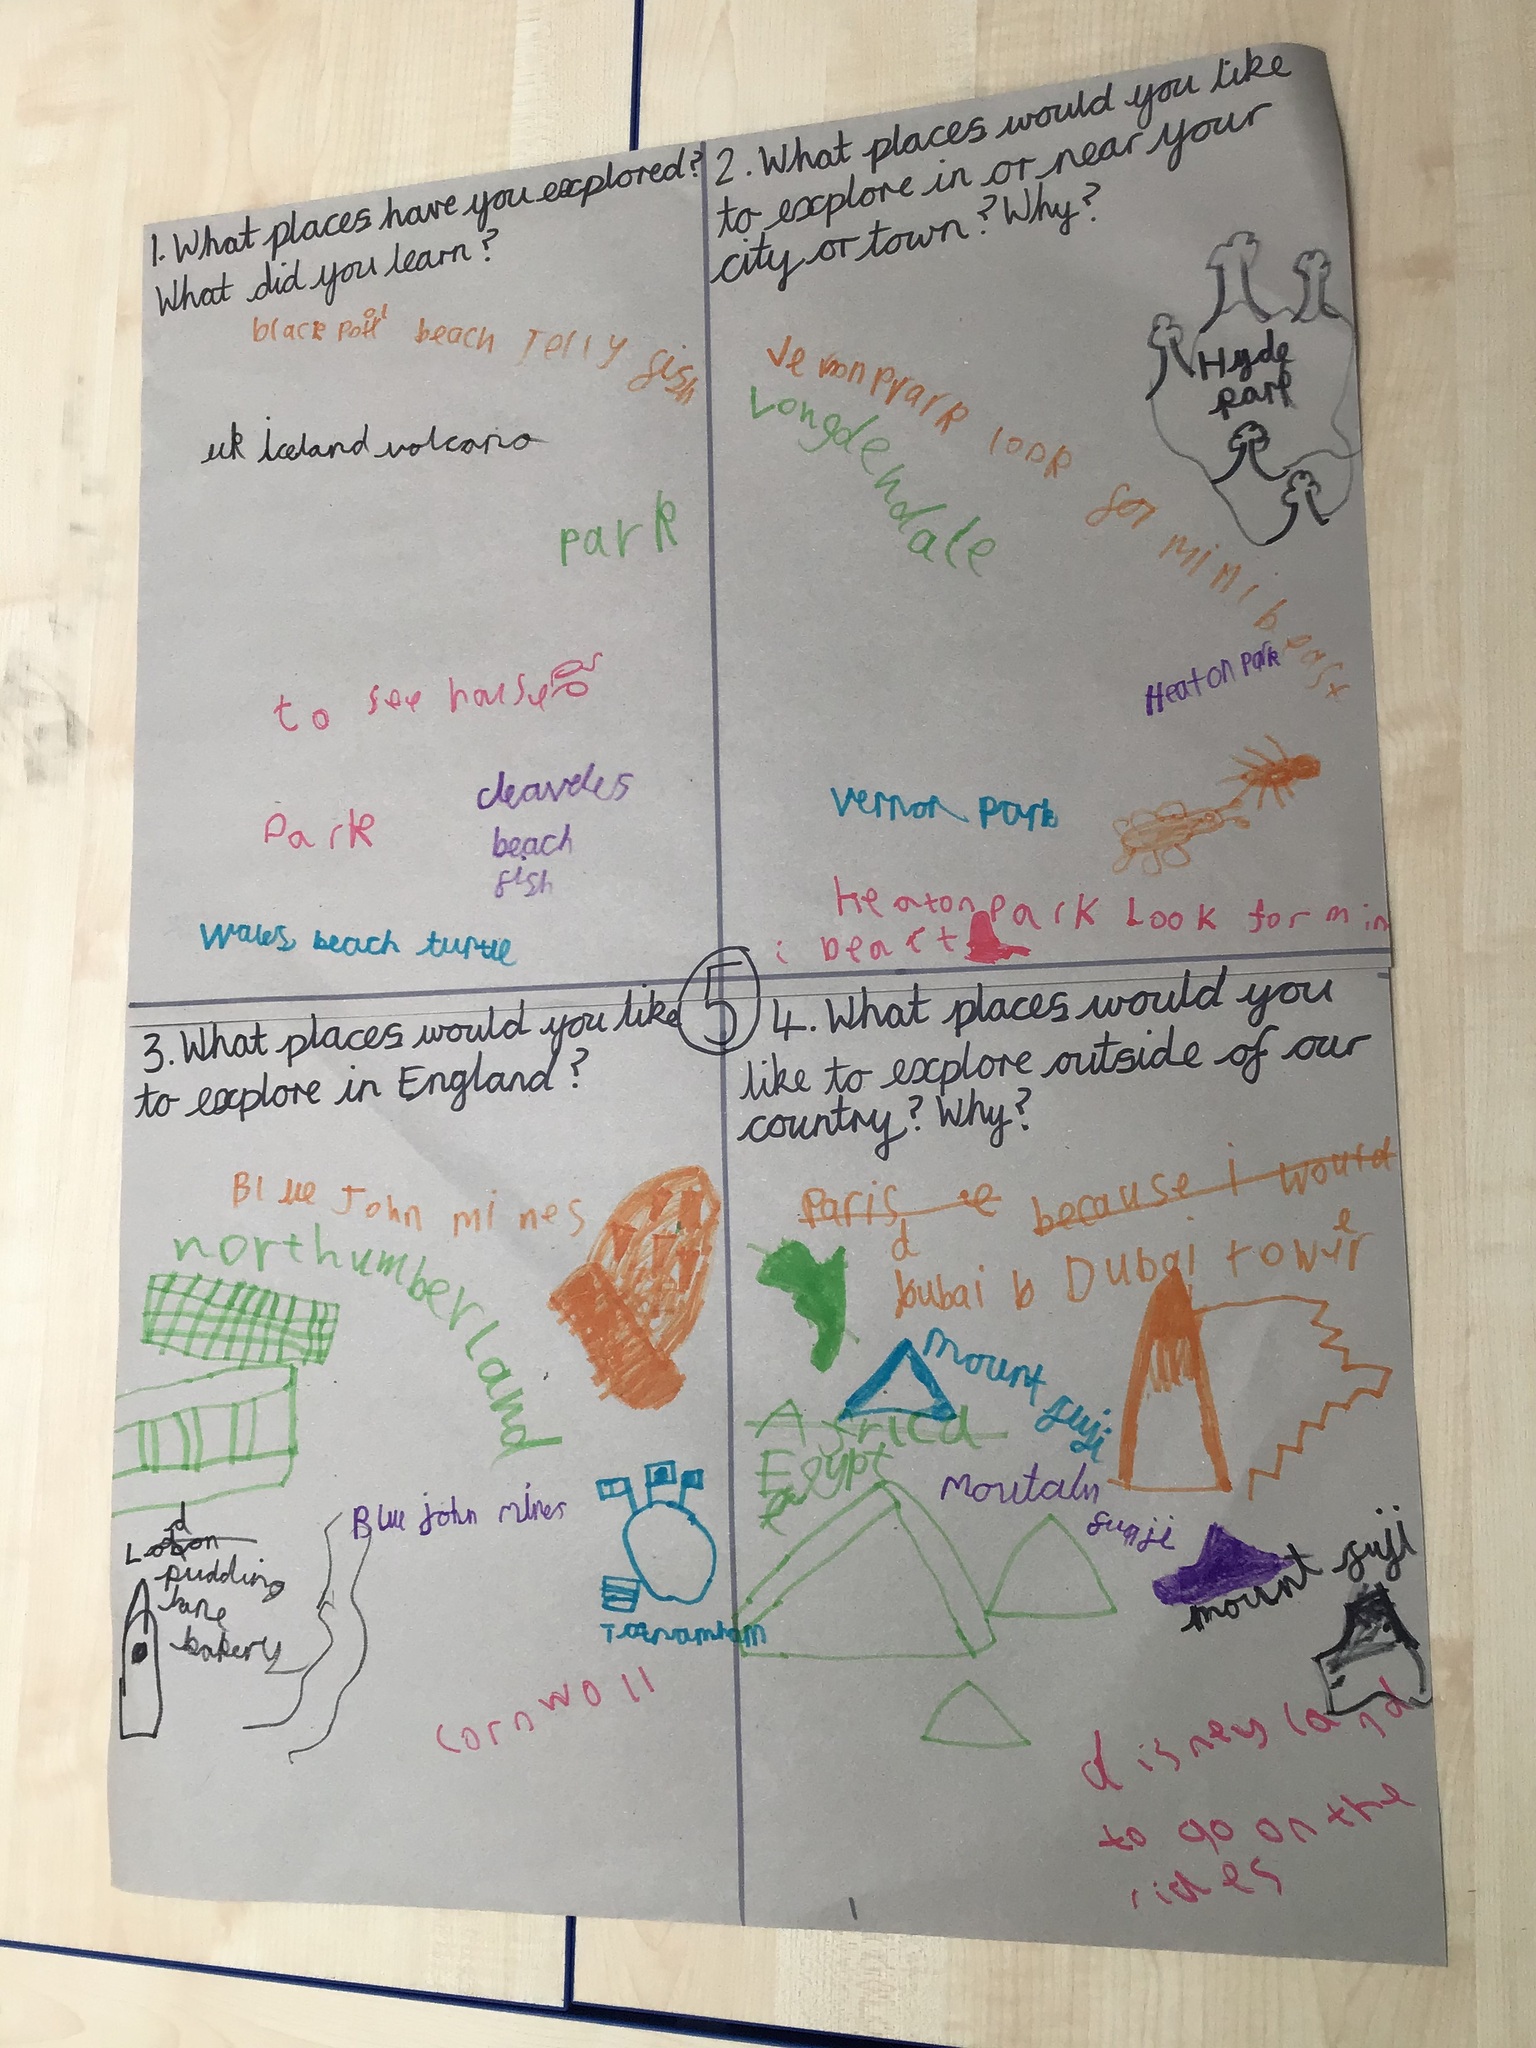 1. What places have you explored?
What did you learn?
black poll beach Jelly fish
uk iceland volcano
park
to see house
Park
cleaveles
beach
fish
Wales beach turtle
2. What places would you like
to explore in or near your
city or town? Why?
Hyde
park
Vernon prark look for mini beast
Longdendale
Heaton Park
Vernon park
Heaton park Look for min
i beast
5
3. What places would you like
to explore in England?
Blue John mines
northumberland
Blue john mines
pudding
lane
bakery
Totnamham
cornwoll
4. What places would you
like to explore outside of our
country? Why?
Paris e because i would
d e
bubai b Dubai tower
mount fuji
Africa
Egypt
Moutain
fugji
mount fuji
disney land
to go on the
rides